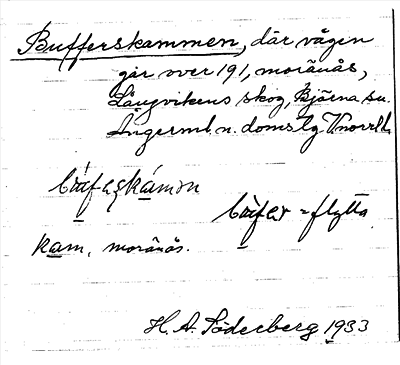 Bufferskammen, där vägen
går över 191, moränås,
Långvikens skog, Björna sn.
Ångerml. n. domsg V.norrl.
bu̱fəṣka̱mən
bu̱fər = flytta
kam, moränås.
H. A. Söderberg 1933